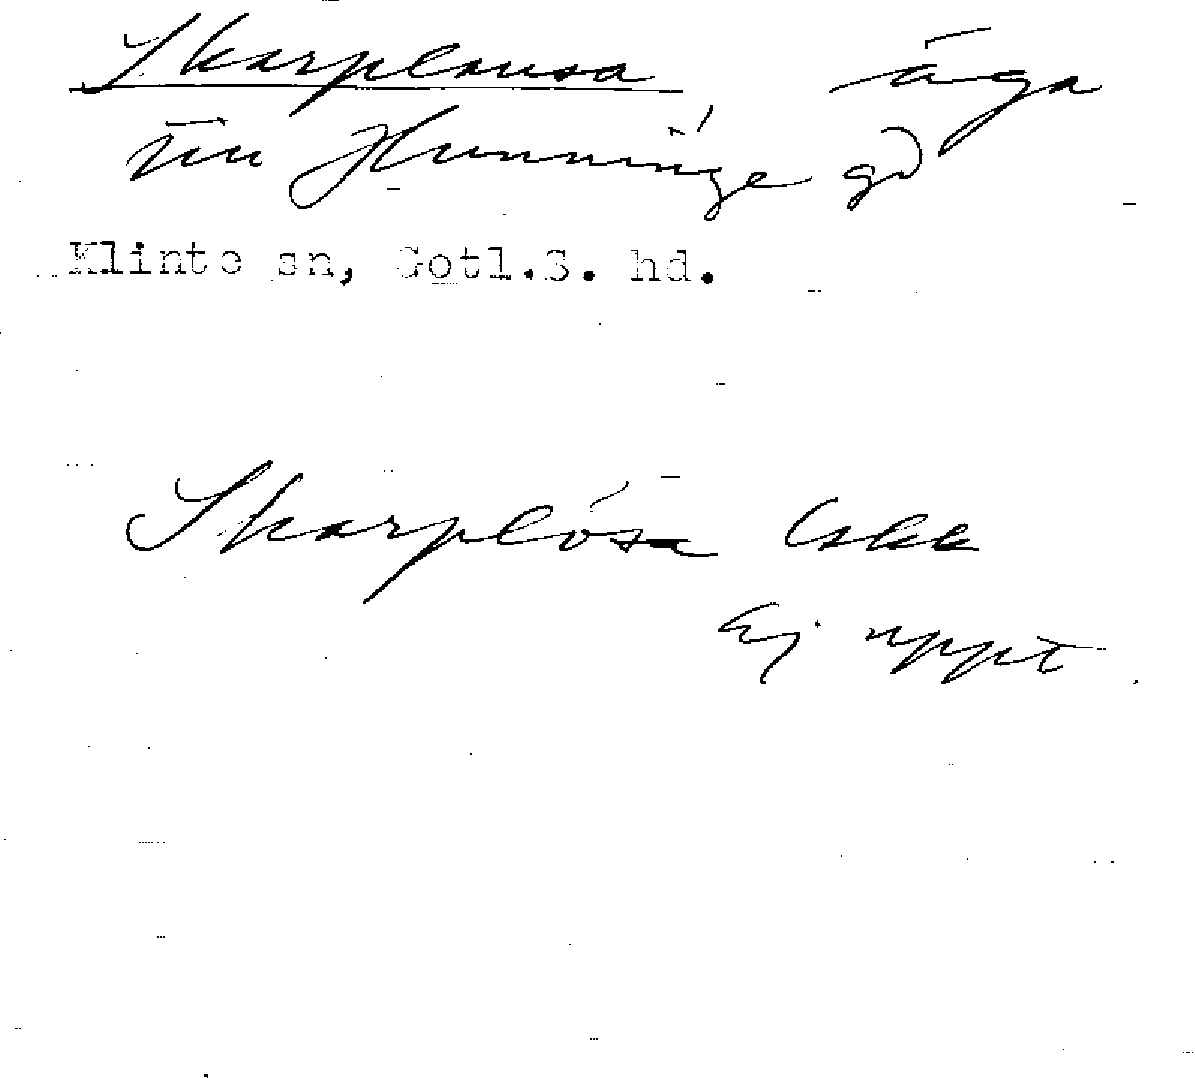 Skarplausa äga
Hunninge gd
Klinte sn, Gotl.S. hd.
Skarplösa
Ej uppt.